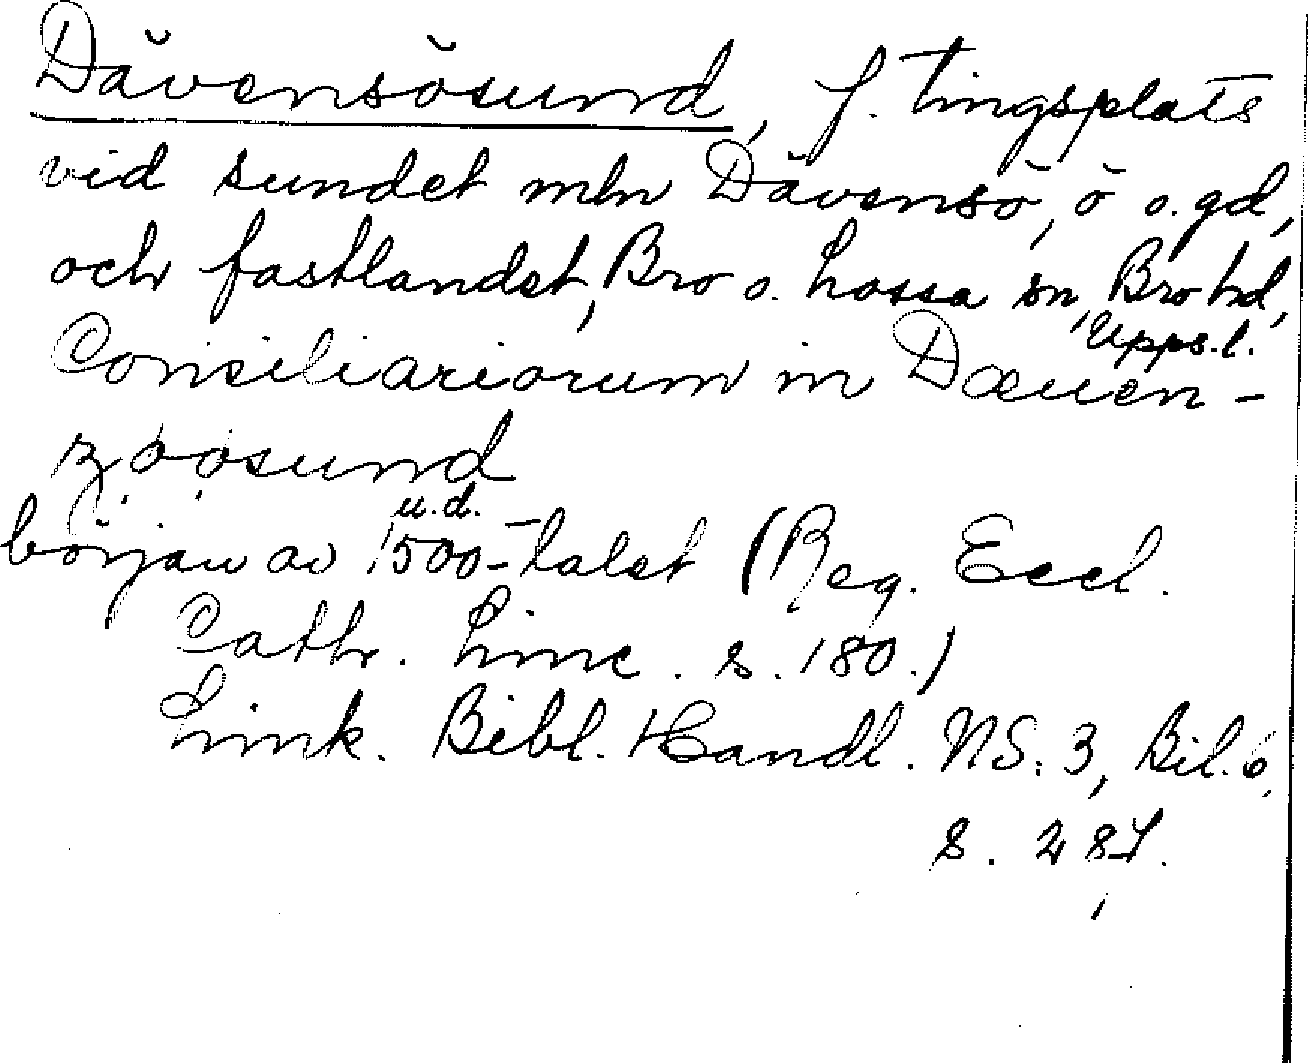 Dävensösund, f. tingsplats
vid sundet mln Dävensö, ö o. gd,
och fastlandet, Bro o. Lossa sn, Bro hd,
Upps. l.
Consiliariorum in Dæuen-
zöösund
u.d.
början av 1500-talet (Reg. Eccl.
Cath. Linc. s. 180.)
Link. Bibl. Handl. NS. 3, Bil. 6,
s. 287.